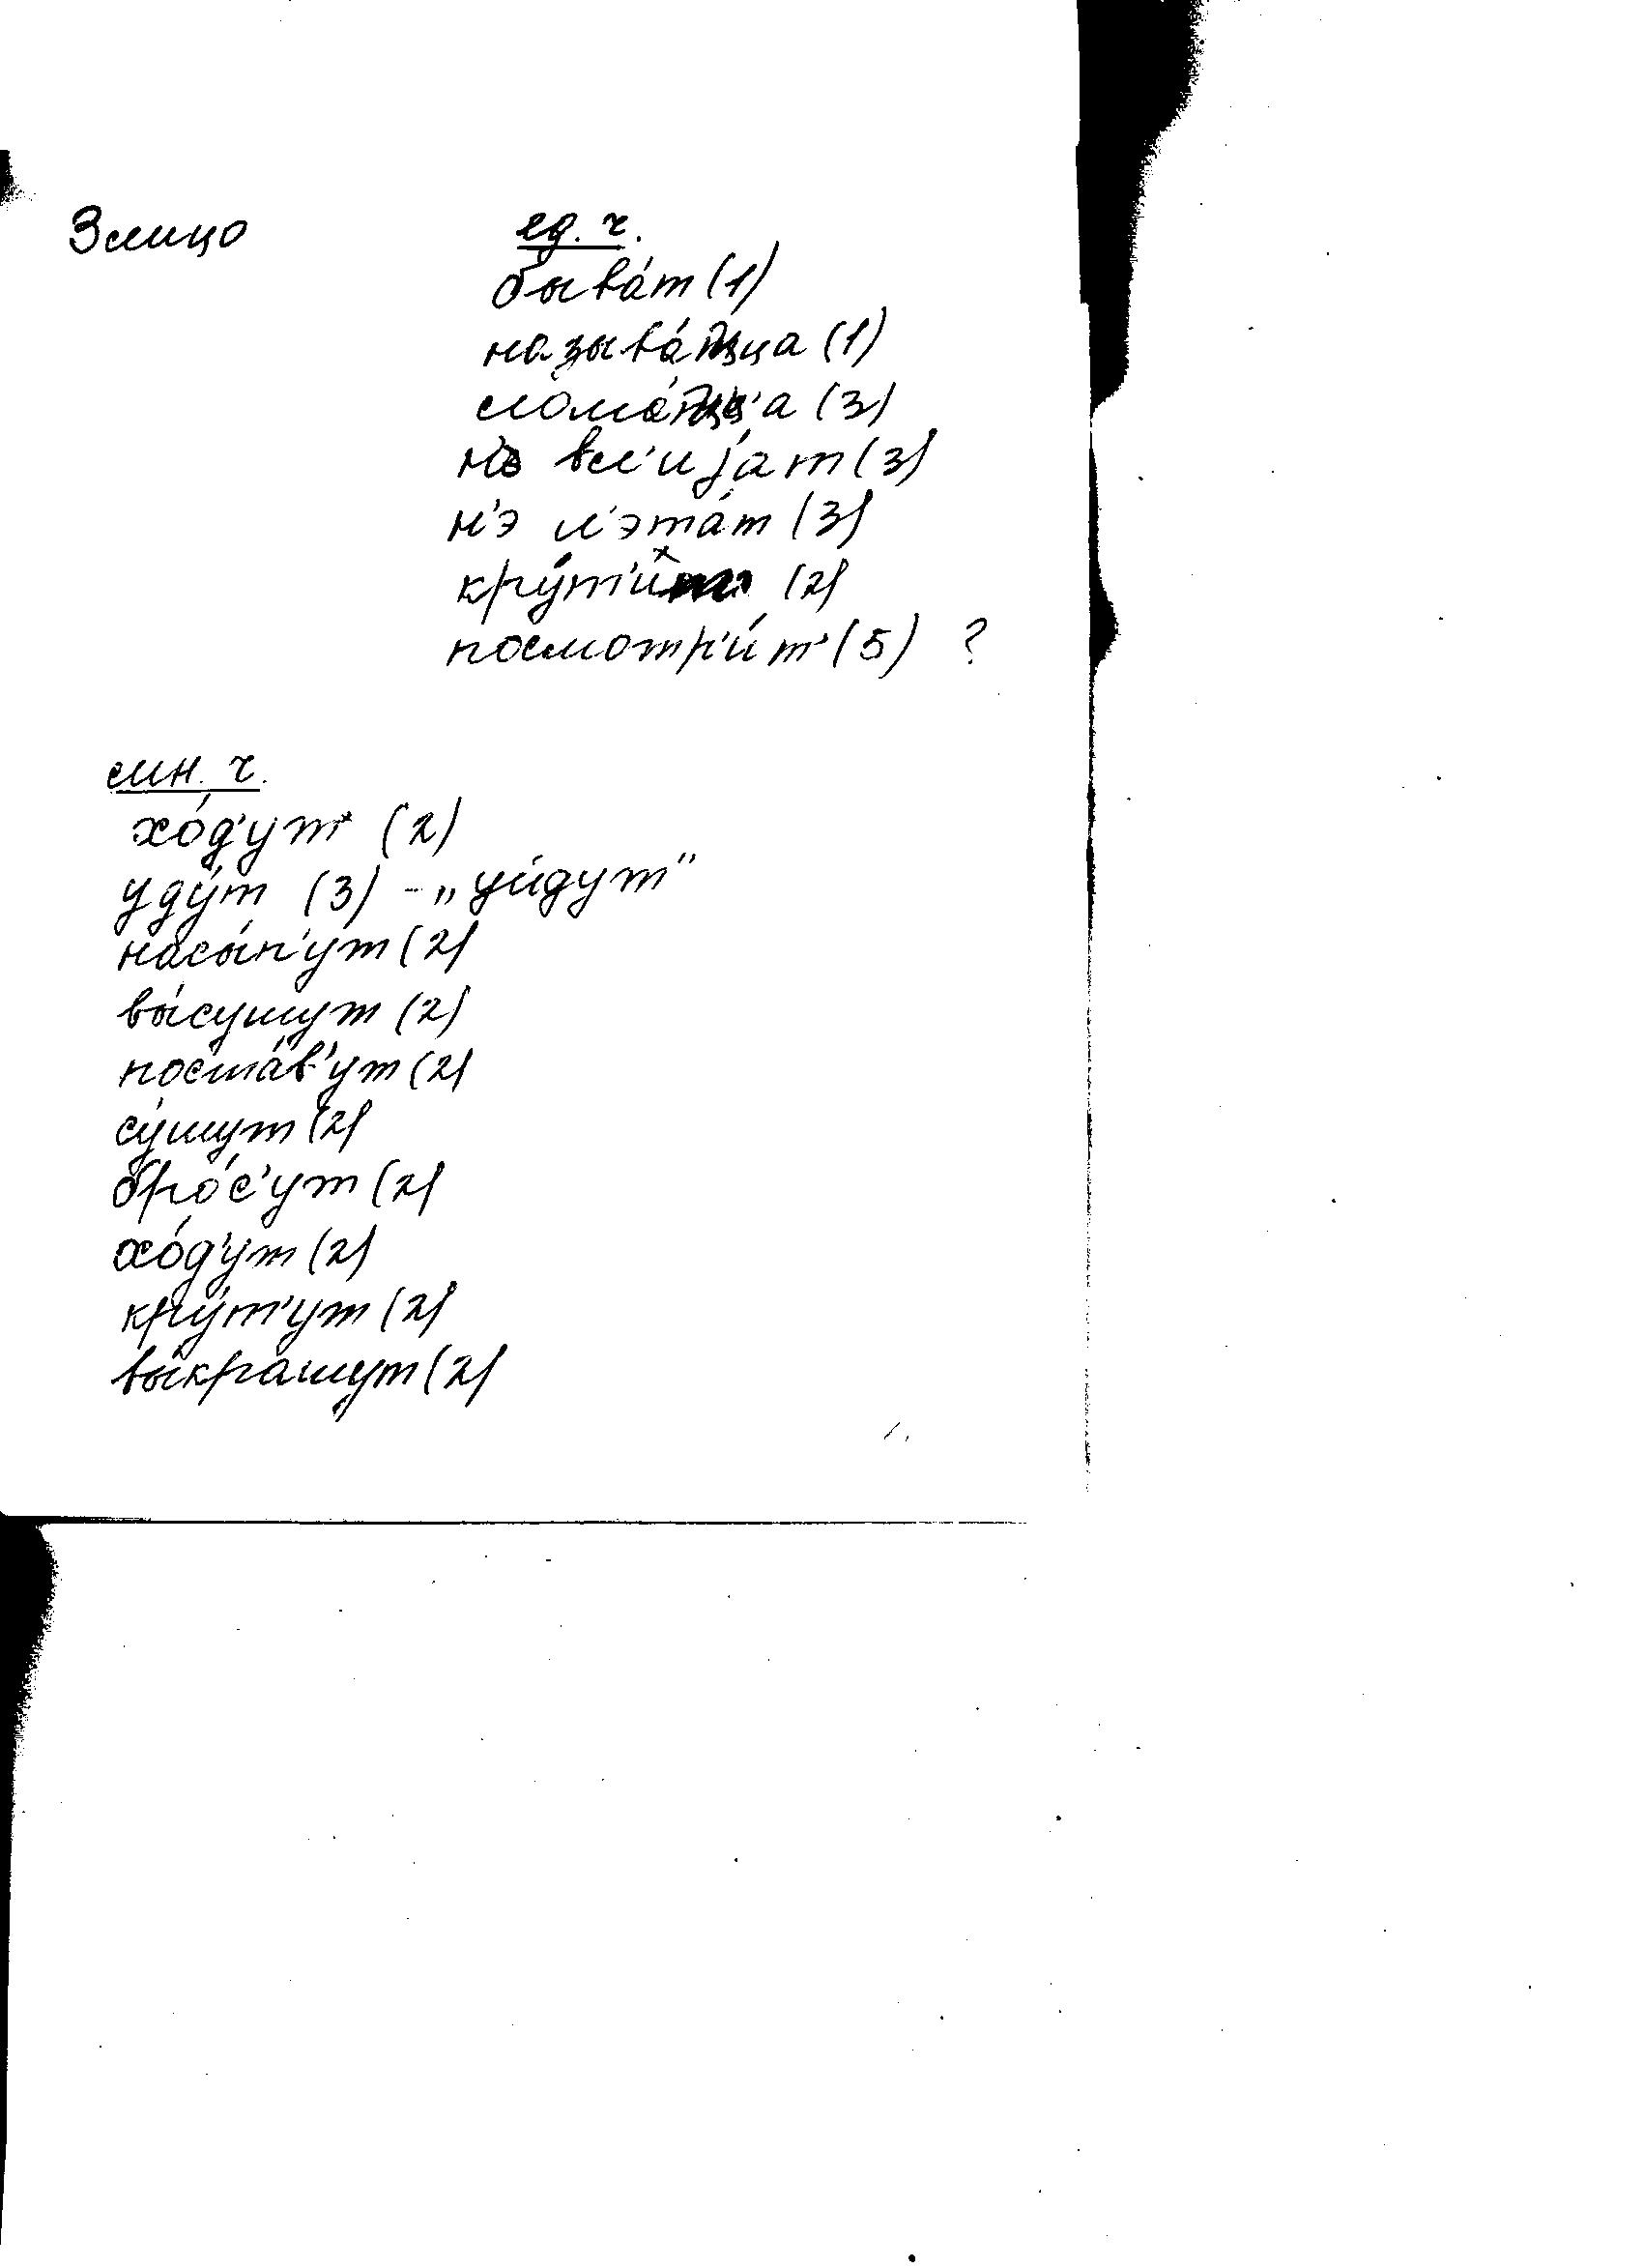 3 лицо ед. ч.
быва́т (1)
называ́цца (1)
лома́цца (3)
вл'иjа́т (3)
н'э л'эта́т (3)
кру́т'ит (2)
посмотр'и́т' (5) ?
мн. ч.
хо́д'ут (2)
уду́т (3) - „уйдут"
насы́п'ут (2)
вы́сушут (2)
поста́в'ут (2)
су́шут (2)
бро́с'ут (2)
хо́д'ут (2)
кру́т'ут (2)
вы́крашут (2)